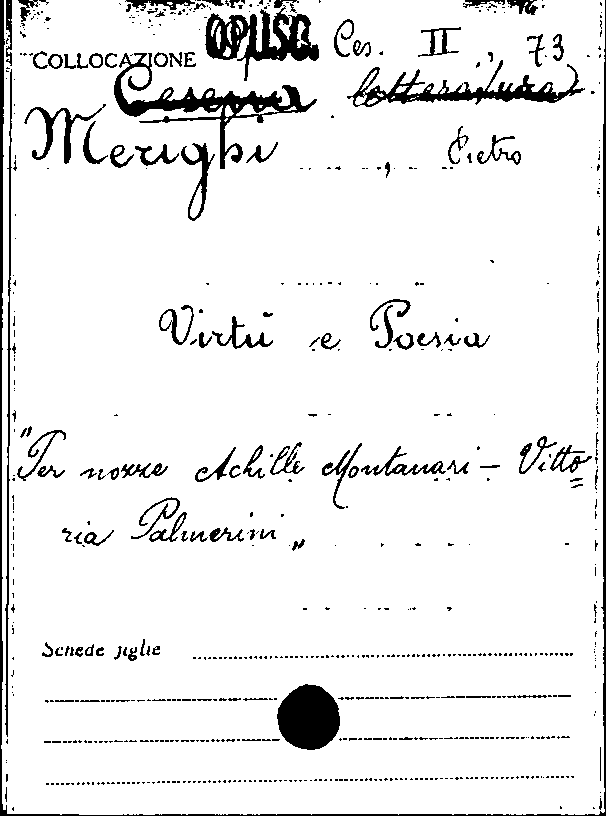 COLLOCAZIONE OPUSC. Ces. II, 73
Cesena letteratura
Merighi, Pietro
Virtù e Poesia
"Per nozze Achille Montanari - Vitto
ria Palmerini"
Schede figlie